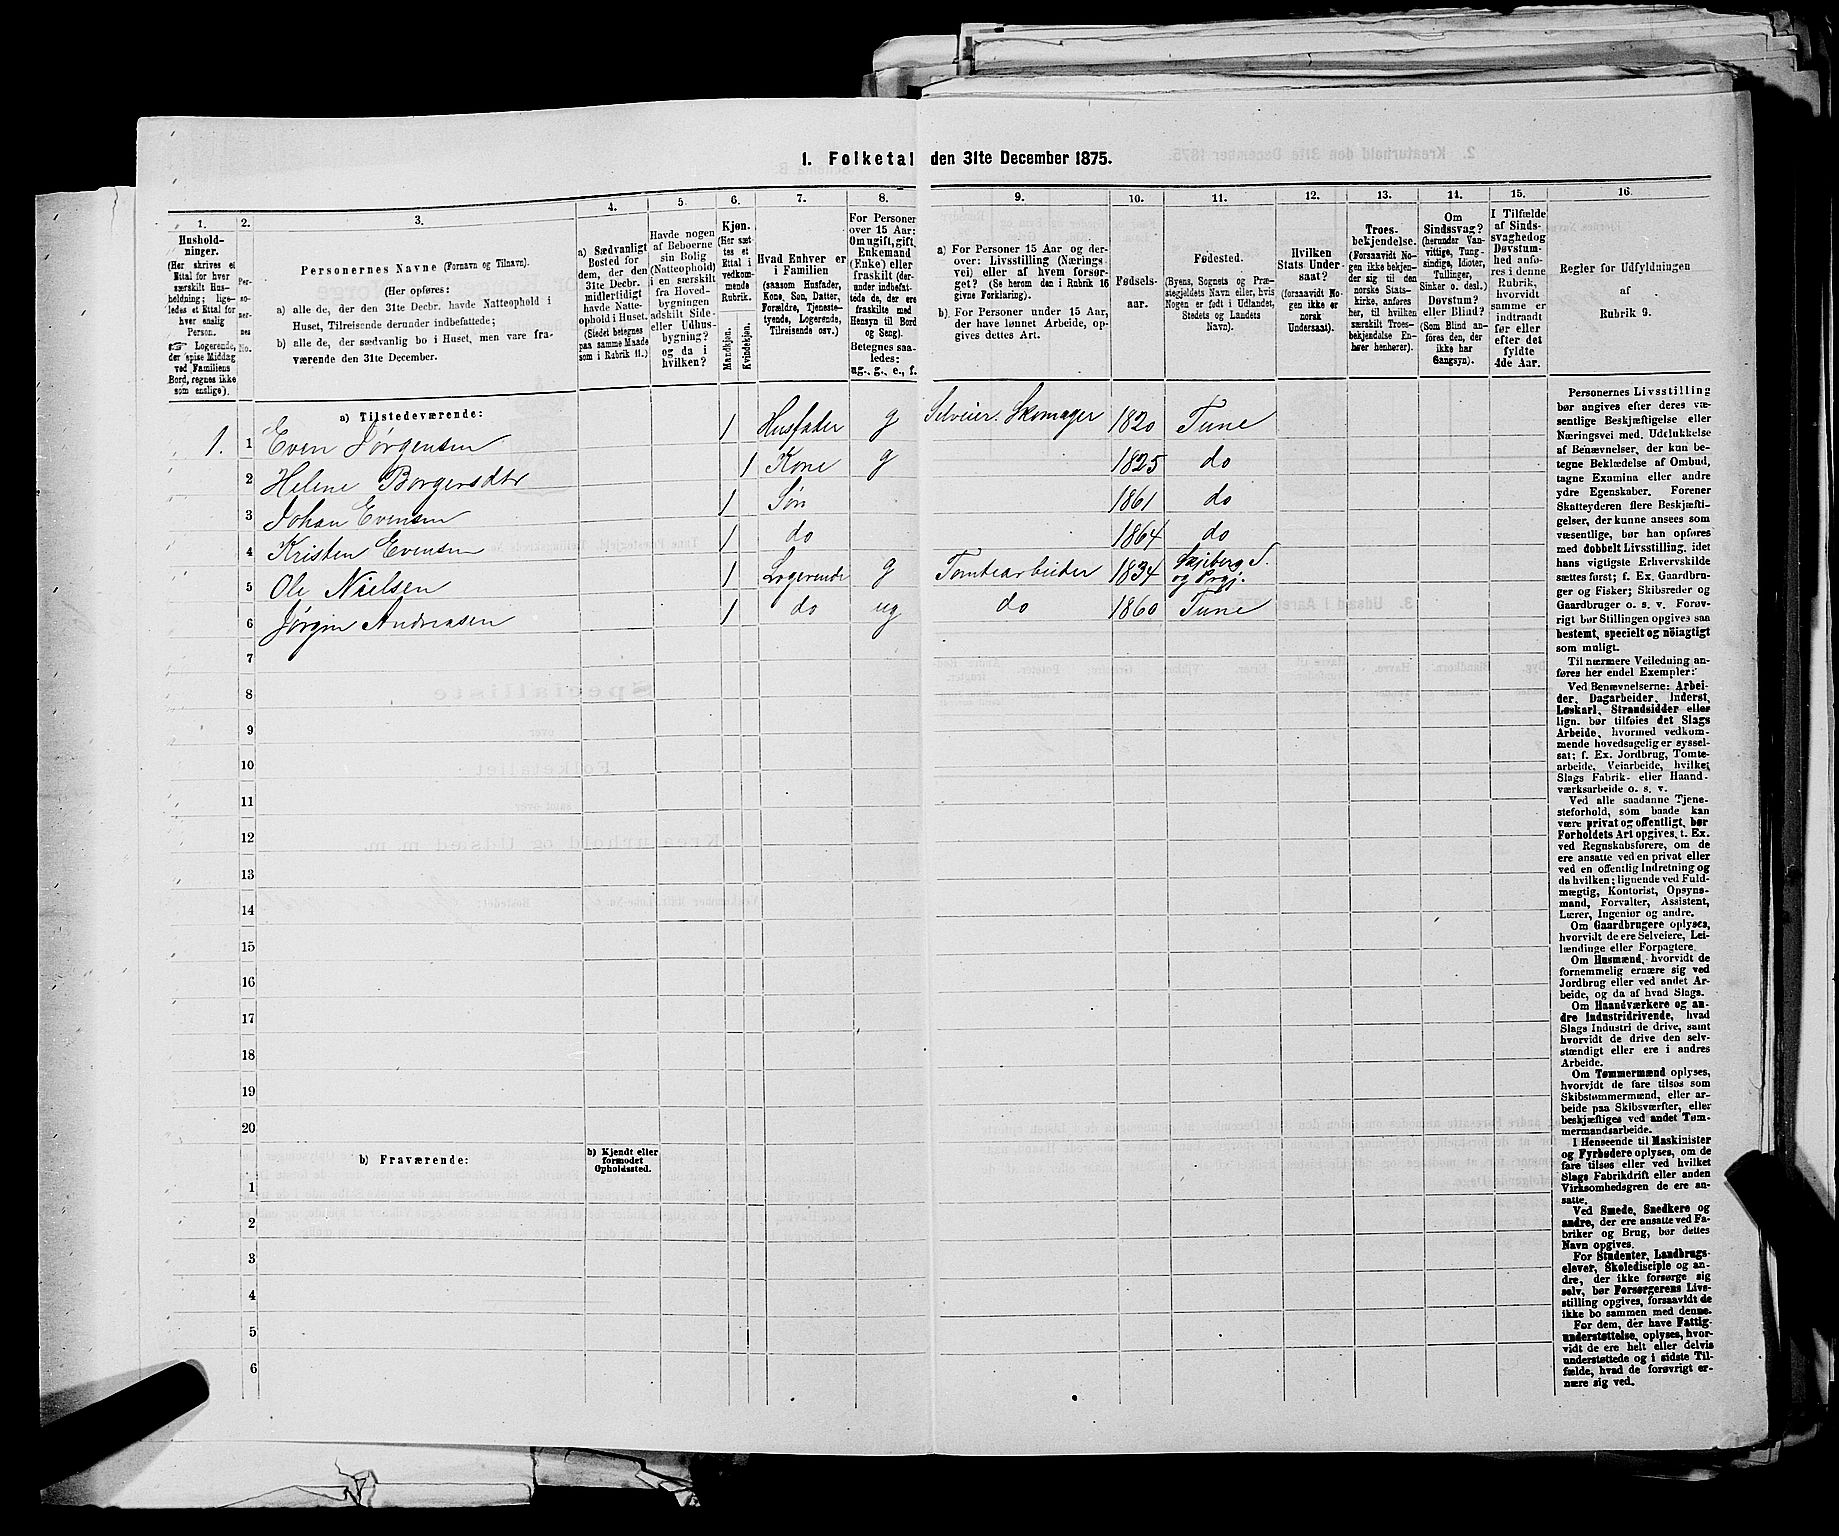 1. Folketal den 31te December 1875.
1.
Hushold-
ninger.
(Her skrives et
Ettal for hver
særskilt Hus-
holdning; lige-
ledes et Ettal for
hver enslig
Person.
☞ Logerende,
der spise Middag
ved Familiens
Bord, regnes ikke
som enslige).
2.
Per-
so-
ner-
nes
No.
3.
Personernes Navne (Fornavn og Tilnavn).
(Her opføres:
a) alle de, der den 31te Decbr. havde Natteophold i
Huset, Tilreisende derunder indbefattede;
b) alle de, der sædvanlig bo i Huset, men vare fra-
værende den 31te December.
4.
a) Sædvanligt
Bosted for
dem, der den
31te Decbr.
midlertidigt
havde Natte-
ophold i Huset.
(Stedet betegnes
paa samme Maade
som i Rubrik 11.)
5.
Havde nogen
af Beboerne
sin Bolig
(Natteophold)
i en særskilt
fra Hoved-
bygningen
adskilt Side-
eller Udhus-
bygning?
og da i
hvilken?
6.
Kjøn.
(Her sæt-
tes et
Ettal i
vedkom-
mende
Rubrik.
Mandkjøn.
Kvindekjøn.
7.
Hvad Enhver er
i Familien
(saasom Husfader,
Kone, Søn, Datter,
Forældre, Tjeneste-
tyende, Logerende,
Tilreisende osv.)
8.
For Personer
over 15 Aar:
Om ugift, gift,
Enkemand
(Enke) eller
fraskilt (der-
under indbefat-
tede de, der ere
fraskilte med
Hensyn til Bord
og Seng).
Betegnes saa-
ledes:
ug., g., e., f.
9.
a) For Personer 15 Aar og der-
over: Livsstilling (Nærings-
vei) eller af hvem forsør-
get? (Se herom den i Rubrik 16
givne Forklaring).
b) For Personer under 15 Aar,
der have lønnet Arbeide, op-
gives dettes Art.
10.
Fødsels-
aar.
11.
Fødested.
(Byens, Sognets og Præ-
stegjeldets Navn eller, hvis
Nogen er født i Udlandet,
Stedets og Landets
Navn).
12.
Hvilken
Stats Under-
saat?
(forsaavidt No-
gen ikke er
norsk
Undersaat).
13.
Troes-
bekjendelse.
(Forsaavidt No-
gen ikke bekjen-
der sig til den
norske Stats-
kirke, anføres
her, til hvilken
særskilt Troes-
bekjendelse En-
hver henhører).
14.
Om
Sindssvag?
(herunder Van-
vittige, Tung-
sindige, Idioter,
Tullinger,
Sinker o. desl.)
Døvstum?
eller Blind?
(Som Blind an-
føres den, der
ikke har
Gangsyn).
15.
I Tilfælde
af Sinds-
svaghed og
Døvstum-
hed anfø-
res i denne
Rubrik,
hvorvidt
samme er
indtraadt
før eller
efter det
fyldte
4de Aar.
16.
Regler for Udfyldningen
af
Rubrik 9.
a) Tilstedeværende:
1. 1 Even Jørgensen 1 Husfader g Selveier. Skomager 1820 Tune
2 Helene Borgersdtr 1 Kone g 1825 do
3 Johan Evensen 1 Søn 1861 do
4 Kristen Evensen 1 do 1864 do
5 Ole Nielsen 1 Logerende g Tomtearbeider 1834 Skjeberg S.
og Prgj.
6 Jørgen Andreasen 1 do ug do 1860 Tune
7
8
9
10
11
12
13
14
15
16
17
18
19
20
b) Fraværende:
b) Kjendt eller
formodet
Opholdssted.
1
2
3
4
5
6
Personernes Livsstilling
bør angives efter deres væ-
sentlige Beskjæftigelse eller
Næringsvei med Udelukkelse
af Benævnelser, der kun be-
tegne Beklædelse af Ombud,
tagne Examina eller andre
ydre Egenskaber. Forener
Skatteyderen flere Beskjæfti-
gelser, der kunne ansees som
væsentlige, bør han opføres
med dobbelt Livsstilling, idet
hans vigtigste Erhvervskilde
sættes først; f. Ex. Gaardbru-
ger og Fisker; Skibsreder og
Gaardbruger o. s. v. Forøv-
rigt bør Stillingen opgives saa
bestemt, specielt og nöiagtigt
som muligt.
Til nærmere Veiledning an-
føres her endel Exempler:
Ved Benævnelserne: Arbei-
der, Dagarbeider, Inderst,
Løskarl, Strandsidder eller
lign. bør tilføies det Slags
Arbeide, hvormed vedkom-
mende hovedsagelig er syssel-
sat; f. Ex. Jordbrug, Tomte-
arbeide, Veiarbeide, hvilket
Slags Fabrik- eller Haand-
værksarbeide o. s. v.
Ved alle saadanne Tjene-
steforhold, som baade kan
være privat og offentligt, bør
Forholdets Art opgives, t. Ex.
ved Regnskabsførere, om de
ere ansatte ved en privat eller
ved en offentlig Indretning og
da hvilken; lignende ved Fuld-
mægtig, Kontorist, Opsyns-
mand, Forvalter, Assistent,
Lærer, Ingeniør og andre.
Om Gaardbrugere oplyses,
hvorvidt de ere Selveiere, Lei-
lændinge eller Forpagtere.
Om Husmænd, hvorvidt de
fornemmelig ernære sig ved
Jordbrug eller ved andet Ar-
beide, og da af hvad Slags.
Om Haandværkere og an-
dre Industridrivende, hvad
Slags Industri de drive, samt
hvorvidt de drive den selv-
stændigt eller ere i andres
Arbeide.
Om Tømmermænd oplyses,
hvorvidt de fare tilsøs som
Skibstømmermænd, eller ar-
beide paa Skibsværfter, eller
beskjæftiges ved andet Tøm-
mermandsarbeide.
I Henseende til Maskinister
og Fyrbødere oplyses, om de
fare tilsøs eller ved hvilket
Slags Fabrikdrift eller anden
Virksomhedsgren de ere an-
satte.
Ved Smede, Snedkere og
andre, der ere ansatte ved Fa-
briker og Brug, bør dettes
Navn opgives.
For Studenter, Landbrugs-
elever, Skoledisciple og an-
dre, der ikke forsørge sig
selv, bør Forsørgerens Livs-
stilling opgives, forsaavidt de
ikke bo sammen med denne.
For dem, der have Fattig-
understøttelse, oplyses, hvor-
vidt de ere helt eller delvis
understøttede og i sidste Til-
fælde, hvad de forøvrigt er-
nære sig ved.